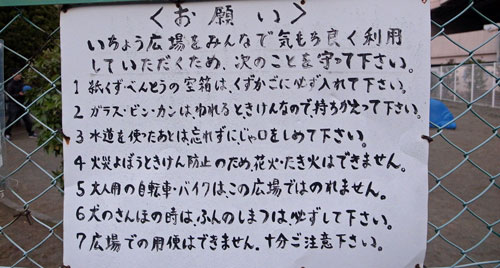 <お願い>
いちょう広場をみんなで気もち良く利用
していただくため、次のことを守って下さい。
1 紙くずべんとうの空箱は、くずかごに必ず入れて下さい。
2 ガラス・ビン・カンは、われるときけんなので持ちかえって下さい。
3 水道を使ったあとは、忘れずに、じゃ口をしめて下さい。
4 火災よぼうときけん防止のため、花火・たき火はできません。
5 大人用の自転車・バイクは、この広場ではのれません。
6 犬のさんぽの時は、ふんのしまつは、必ずして下さい。
7 広場での用便はできません。十分ご注意下さい。